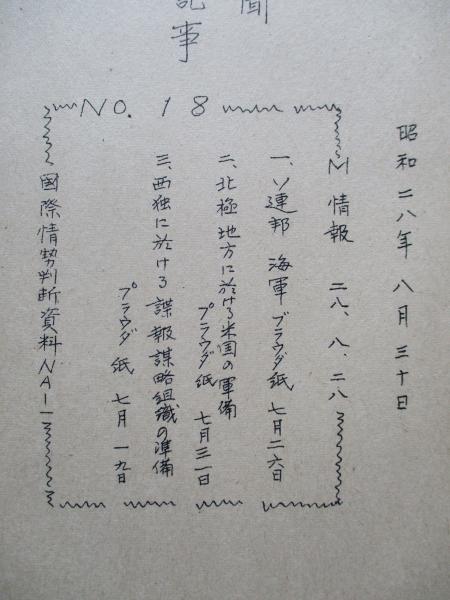 聞
記事
昭和二八年八月三十日
NO. 18
M情報 二八、八、二八
一、ソ連邦 海軍 プラウダ紙 七月二六日
二、北極地方に於ける米国の軍備
プラウダ紙 七月三一日
三、西独に於ける諜報謀略組織の準備
プラウダ紙 七月一九日
國際情勢判断資料NA-一